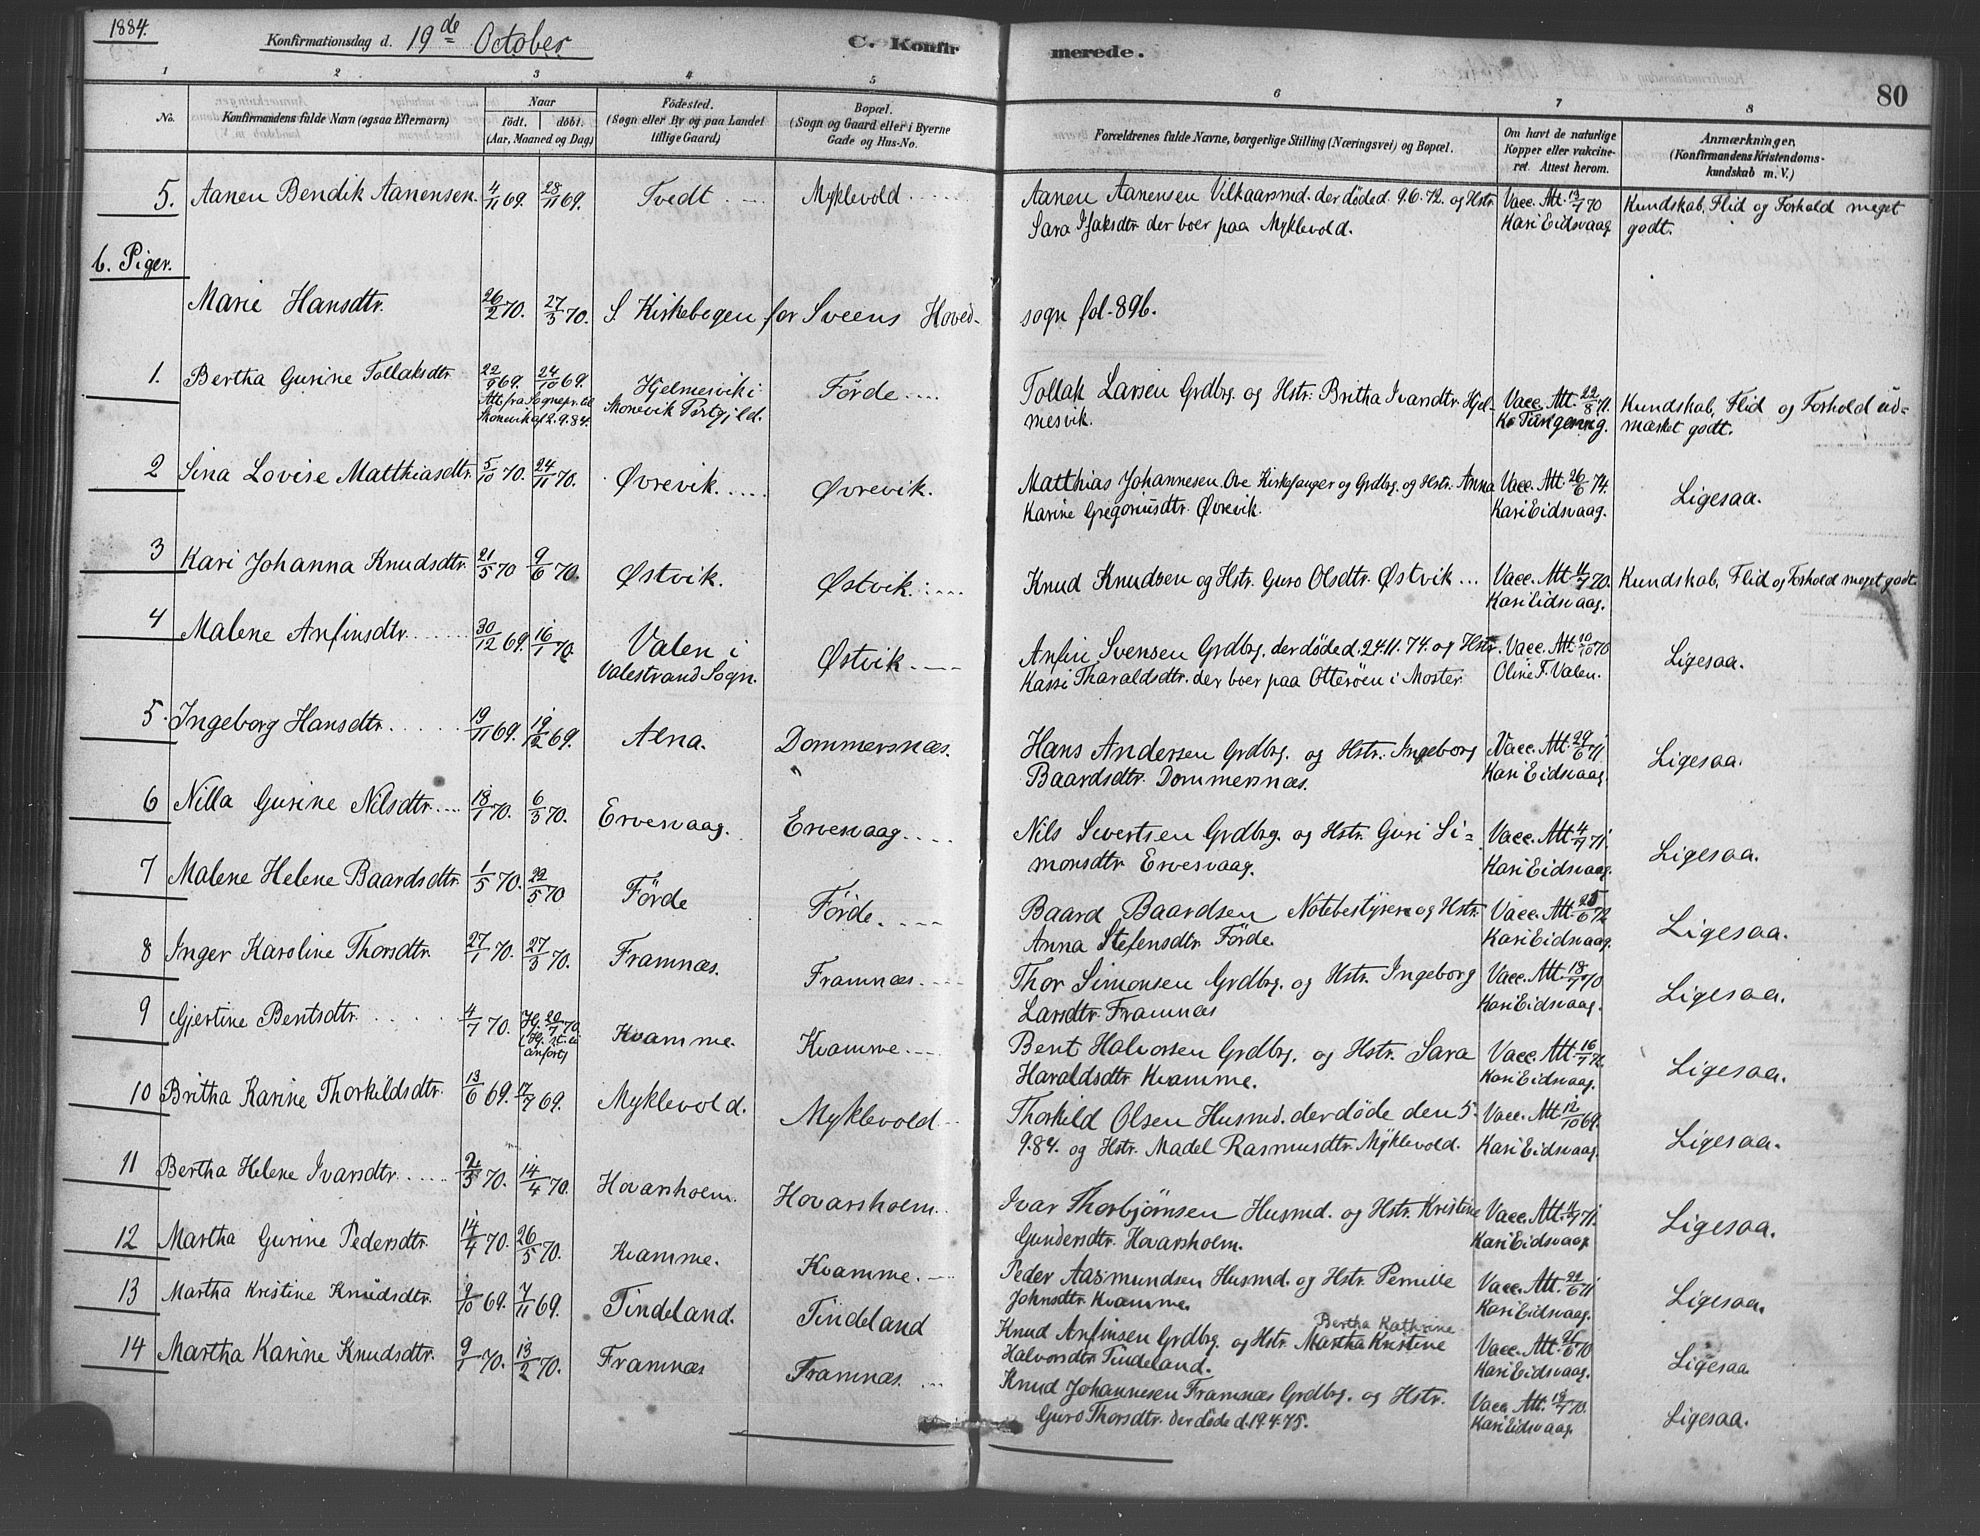 1884.
Konfirmationsdag d. 19de October.
C. Konfirmerede.
80
1 2 3 4 5 6 7 8
No.
Konfirmandens fulde Navn (ogsaa Efternavn)
Naar
födt. döbt.
(Aar, Maaned og Dag)
Födested.
(Sogn eller By og paa Landet
tillige Gaard)
Bopæl.
(Sogn og Gaard eller i Byerne
Gade og Hus-No.
Forældrenes fulde Navne, borgerlige Stilling (Næringsvei) og Bopæl.
Om havt de naturlige
Kopper eller vakcine-
ret. Attest herom.
Anmærkninger,
(Konfirmandens Kristendoms-
kundskab m. V.)
5. Aanen Bendik Aanensen 4/11 69. 28/11 69. Tvedt Myklevold Aanen Aanensen Vilkaarsmd. der døde d. 9.6.72. og Hstr. Vacc. Att. 13/7 70 Kundskab, Flid og Forhold meget
Sara Isaksdtr der boer paa Myklevold. Kari Eidsvaag godt.
b. Piger.
Marie Hansdtr. 26/2 70. 27/3 70. S. Kirkebogen for Sveens Hoved-sogn fol. 89b.
1. Bertha Gurine Tollaksdtr 22/9 69. 24/10 69. Hjelmesvik i Förde Tollak Larsen Grdbrg. og Hstr: Britha Ivarsdtr. Hjel- Vacc. Att. 22/8 71. Kundskab, Flid og Forhold ud-
Att. fra Sognepr. til Skonevik af 2.9.84. Skonevik Prstgjld. mesvik. K. Tungenvg. mærket godt.
2 Sina Lovise Matthiasdtr. 5/10 70. 24/11 70. Øvrevik. Øvrevik. Matthias Johannesen Ove Kirkesanger og Grdbrg. og Hstr: Anna Vacc. Att 26/6 74. Ligesaa.
Karine Gregoriusdtr. Øvrevik. Kari Eidsvaag.
3 Kari Johanna Knudsdtr. 21/5 70 9/6 70. Østvik. Østvik. Knud Knudsen og Hstr. Guro Olsdtr. Østvik Vacc. Att 11/7 70. Kundskab, Flid og Forhold meget godt.
Kari Eidsvaag.
4 Malene Anfinsdtr. 30/12 69. 16/1 70. Valen i Østvik Anfin Svensen Grdbrg. der døde d. 24.11.74. og Hstr. Vacc. Att. 10/10 70 Ligesaa.
Valestrand Sogn. Kassi Tharaldsdtr. der boer paa Otterøen i Moster Oline F. Valen.
5. Ingeborg Hansdtr. 19/11 69. 19/12 69. Alna. Dommersnæs. Hans Andersen Grdbrg. og Hstr: Ingeborg Vacc. Att. 29/6 71. Ligesaa.
Baardsdtr. Dommersnæs. Kari Eidsvaag.
6 Nilla Gurine Nilsdtr. 18/1 70. 6/3 70. Ervesvaag. Ervesvaag Nils Sivertsen Grdbrg. og Hstr. Guri Si- Vacc. Att 4/7 71. Ligesaa.
monsdtr Ervesvaag. Kari Eidsvaag.
7 Malene Helene Baardsdtr. 1/5 70. 22/5 70 Förde Förde. Baard Baardsen Notebestyrer og Hstr. Vacc. Att. 25/6 72 Ligesaa.
Anna Stefensdtr. Förde. Kari Eidsvaag.
8 Inger Karoline Thorsdtr. 27/1 70. 27/3 70. Framnæs. Framnæs. Thor Simonsen Grdbrg. og Hstr. Ingeborg Vacc. Att. 18/7 70 Ligesaa.
Larsdtr. Framnæs Kari Eidsvaag.
9 Gjertine Bentsdtr. 4/7 70. Hj. 20/7 70. Kvamme. Kvamme. Bent Halvorsen Grdbrg. og Hstr. Sara Vacc. Att. 16/7 72. Ligesaa.
anfort) Haraldsdtr. Kvamme. Kari Eidsvaag.
10 Britha Karine Thorkildsdtr. 13/6 69. 17/7 69. Myklevold. Myklevold Thorkild Olsen Husmd. der døde den 5. Vacc. Att. 12/10 69. Ligesaa.
9.84. og Hstr. Madel Rasmusdtr. Myklevold. Kari Eidsvaag.
11 Bertha Helene Ivarsdtr. 2/3 70. 14/4 70. Hovarsholm. Hovarsholm. Ivar Thorbjørnsen Husmd. og Hstr. Kristine Vacc. Att. 4/7 71. Ligesaa.
Gundersdtr. Hovarsholm. Kari Eidsvaag
12 Martha Gurine Pedersdtr. 14/4 70. 26/5 70. Kvamme. Kvamme. Peder Aasmundsen Husmd. og Hstr. Pernille Vacc. Att. 22/6 71 Ligesaa.
Johnsdtr. Kvamme. Kari Eidsvaag.
13 Martha Kristine Knudsdtr. 9/10 69. 7/11 69. Tindeland. Tindeland Knud Anfinsen Grdbrg. og Hstr. Martha Kristine Bertha Kathrine Vacc. Att. 26/6 70 Ligesaa
Halvorsdtr Tindeland. Kari Eidsvaag.
14 Martha Karine Knudsdtr. 9/1 70. 13/2 70. Framnæs Framnæs. Knud Johannesen Framnæs Grdbrg. og Hstr. Vacc. Att. 18/7 70. Ligesaa.
Guro Thorsdtr. der døde d. 19.4.75. Kari Eidsvaag.